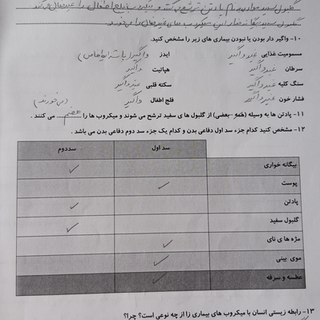 ۱۰- واگیر دار بودن یا نبودن بیماری های زیر را مشخص کنید.
مسمومیت غذایی غیرواگیر ایدز واگیر
سرطان غیرواگیر هپاتیت واگیر
سنگ کلیه غیرواگیر سکته قلبی غیرواگیر
فشار خون غیرواگیر فلج اطفال واگیر
۱۱- پادتن ها به وسیله (همه -بعضی) از گلبول های سفید ترشح می شوند و میکروب ها را هضم می کنند .
۱۲- مشخص کنید کدام جزء سد اول دفاعی بدن و کدام یک جزء سد دوم دفاعی بدن می باشد .
سد اول سددوم
بیگانه خواری ✓
پوست ✓
پادتن ✓
گلبول سفید ✓
مژه های نای ✓
موی بینی ✓
عطسه و سرفه ✓
۱۳- رابطه زیستی انسان با میکروب های بیماری زا از چه نوعی است؟ چرا؟